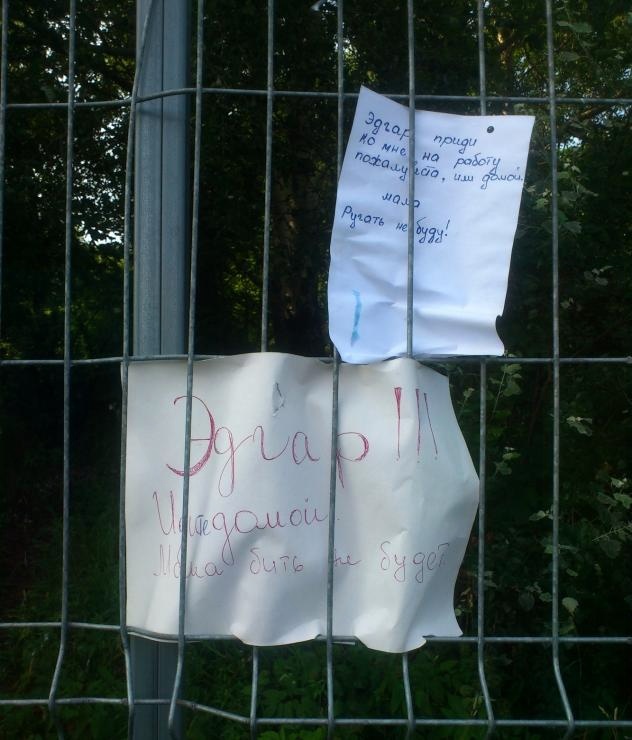 Эдгар приди
ко мне на работу
пожалуйста, или домой.
мама
Ругать не буду!
Эдгар!!!
домой.
Мама бить не будет.